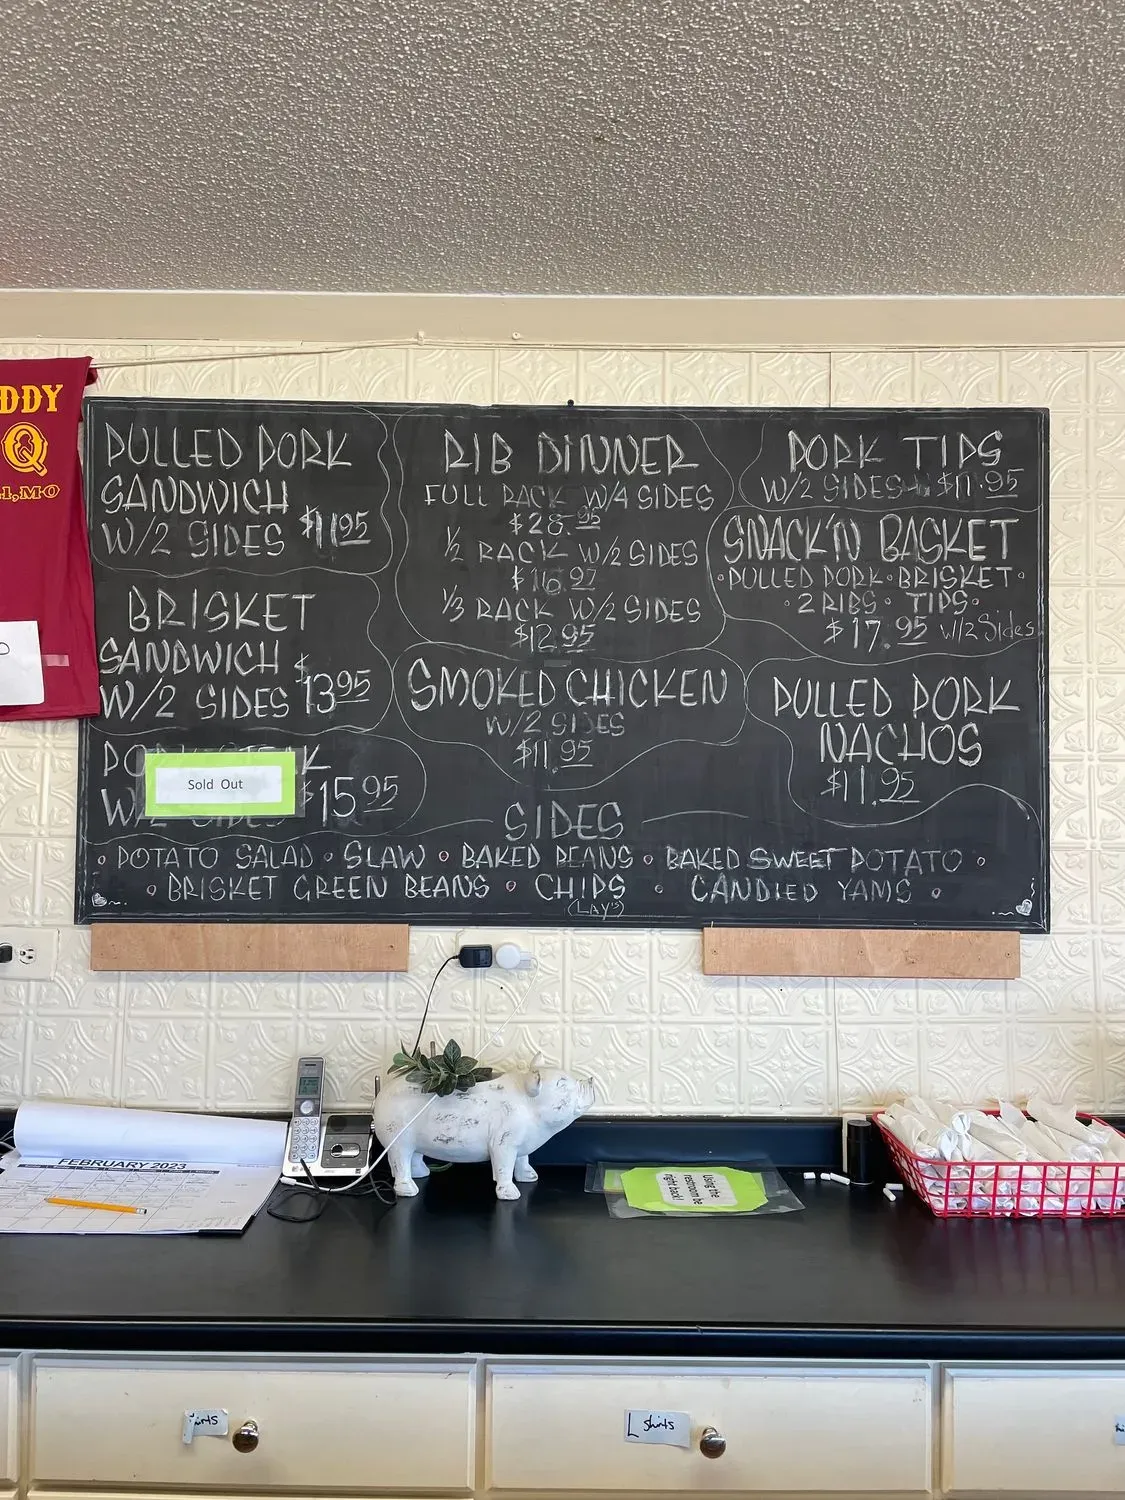 DDY
Q
, MO
PULLED PORK
SANDWICH
W/2 SIDES $11.95
BRISKET
SANDWICH
W/2 SIDES $13.95
Sold Out
$15.95
RIB DINNER
FULL RACK W/4 SIDES
$28.95
1/2 RACK W/2 SIDES
1/3 RACK W/2 SIDES
$12.95
SMOKED CHICKEN
W/2 SIDES
$11.95
PORK TIPS
W/2 SIDES
SNACK'N BASKET
• PULLED PORK • BRISKET •
• 2 RIBS • TIPS •
$17.95 W/2 Sides
PULLED PORK
NACHOS
$11.95
SIDES
• POTATO SALAD • SLAW • BAKED BEANS • BAKED SWEET POTATO •
• BRISKET GREEN BEANS • CHIPS • CANDIED YAMS •
(LAY'S)
FEBRUARY 2023
Using the
restroom be
right back!
L shirts